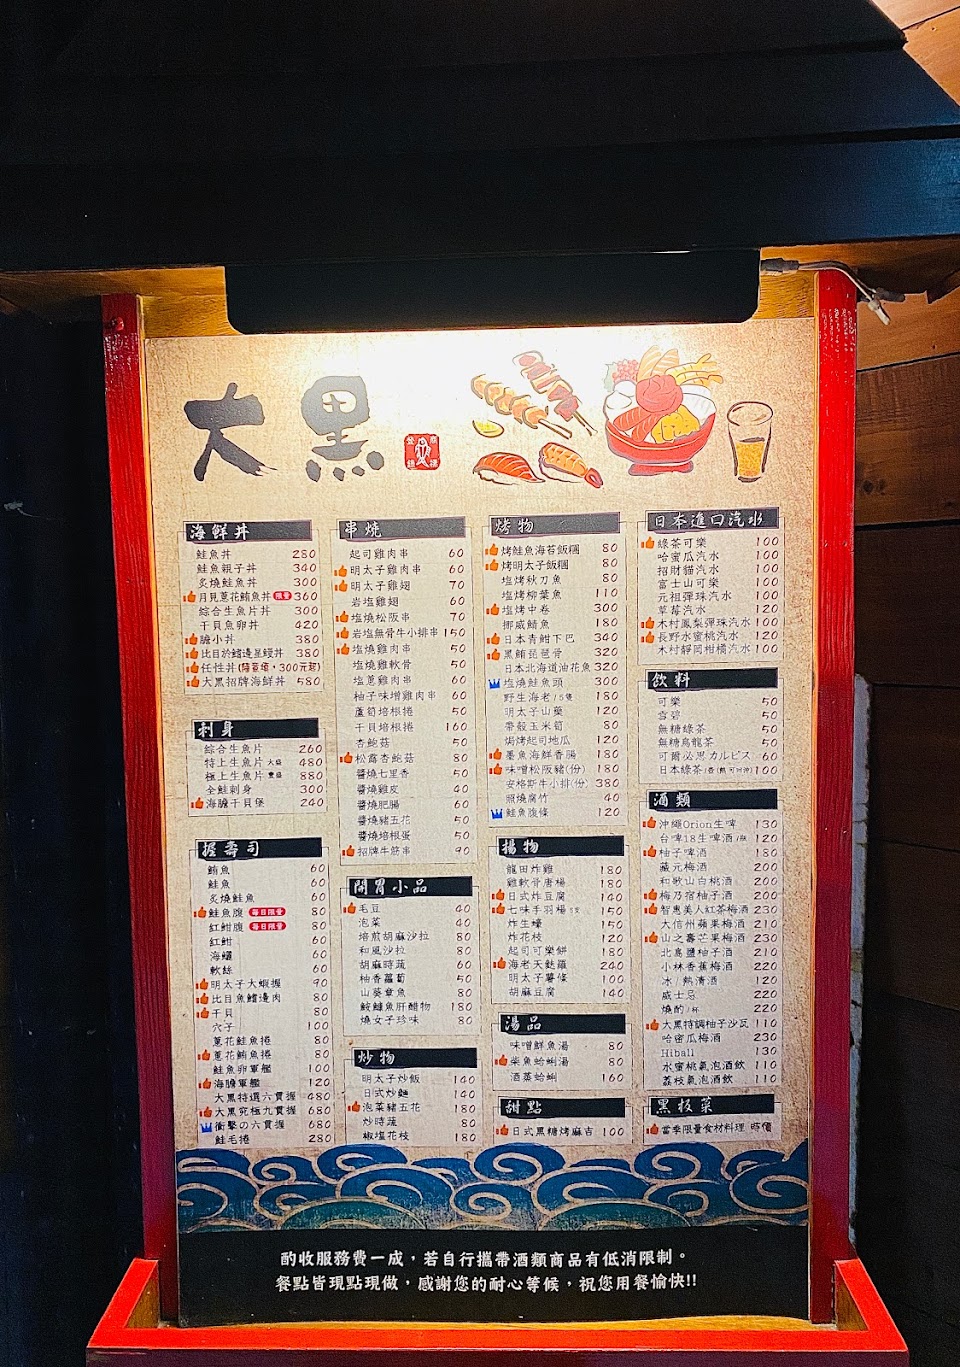 大黑
海鮮丼
鮭魚丼 280
鮭魚親子丼 340
炙燒鮭魚丼 300
月見蔥花鮪魚丼 限量 360
綜合生魚片丼 300
干貝魚卵丼 420
膽小丼 380
比目於鰭邊星鰻丼 380
任性丼(隨意煩，300元起)
大黑招牌海鮮丼 580
刺身
綜合生魚片 260
特上生魚片 大盛 480
極上生魚片 豊盛 880
全鮭刺身 300
海膽干貝堡 240
握壽司
鮪魚 60
鮭魚 60
炙燒鮭魚 60
鮭魚腹 每日限量 80
紅魽腹 每日限量 80
紅魽 60
海鱺 60
軟絲 60
明太子大蝦握 90
比目魚鰭邊肉 80
干貝 80
穴子 100
蔥花鮭捲 80
蔥花鮪魚捲 80
鮭魚卵軍艦 100
海膽軍艦 120
大黑特選六貫握 480
大黑究極九貫握 680
衝擊の六貫握 680
鮭毛捲 280
串燒
起司雞肉串 60
明太子雞肉串 60
明太子雞翅 70
岩塩雞翅 60
塩燒松阪串 70
岩塩無骨牛小排串 150
塩燒雞肉串 50
塩燒雞軟骨 50
塩蔥雞肉串 60
柚子味增雞肉串 60
蘆筍培根捲 50
干貝培根捲 160
杏鮑菇 50
松露杏鮑菇 80
醬燒七里香 50
醬燒雞皮 40
醬燒肥腸 60
醬燒豬五花 50
醬燒培根蛋 50
招牌牛筋串 90
開胃小品
毛豆 40
泡菜 40
焙煎胡麻沙拉 80
和風沙拉 80
胡麻時蔬 60
柚香蘿蔔 50
山葵章魚 80
鮟鱇魚肝醋物 180
燒女子珍味 80
炒物
明太子炒飯 140
日式炒麵 140
泡菜豬五花 180
炒時蔬 80
椒塩花枝 180
烤物
烤鮭魚海苔飯糰 80
烤明太子飯糰 80
塩烤秋刀魚 80
塩烤柳葉魚 110
塩烤中卷 300
挪威鯖魚 180
日本青魽下巴 340
黑鮪琵琶骨 320
日本北海道油花魚 320
塩燒鮭魚頭 300
野生海老/5隻 180
明太子山藥 120
帶殼玉米筍 80
焗烤起司地瓜 120
墨魚海鮮香腸 180
味噌松阪豬(份) 180
安格斯牛小排(份) 380
照燒腐竹 40
鮭魚腹條 120
揚物
龍田炸雞 180
雞軟骨唐楊 180
日式炸豆腐 140
七味手羽楊 5支 150
炸生蠔 150
炸花枝 120
起司可樂餅 180
海老天麩羅 240
明太子薯條 100
胡麻豆腐 140
湯品
味噌鮮魚湯 80
柴魚蛤蜊湯 80
酒蒸蛤蜊 160
甜點
日式黑糖烤麻吉 100
日本進口汽水
綠茶可樂 100
哈蜜瓜汽水 100
招財貓汽水 100
富士山可樂 100
元祖彈珠汽水 100
草莓汽水 120
木村鳳梨彈珠汽水 100
長野水蜜桃汽水 120
木村靜岡柑橘汽水 100
飲料
可樂 50
雪碧 50
無糖綠茶 50
無糖烏龍茶 50
可爾必思カルピス 60
日本綠茶 100
酒類
沖繩Orion生啤 130
台啤18生啤酒/瓶 120
柚子啤酒 180
藏元梅酒 200
和歌山白桃酒 200
梅乃宿柚子酒 200
智惠美人紅茶梅酒 230
大信州蘋果梅酒 210
山之壽芒果梅酒 230
北島鹽柚子酒 210
小林香蕉梅酒 220
冰/熱清酒 120
威士忌 220
燒酌/杯 220
大黑特調柚子沙瓦 110
哈密瓜梅酒 230
Hiball 130
水蜜桃氣泡酒飲 110
荔枝氣泡酒飲 110
黑板菜
當季限量食材料理 時價
酌收服務費一成，若自行攜帶酒類商品有低消限制。
餐點皆現點現做，感謝您的耐心等候，祝您用餐愉快!!